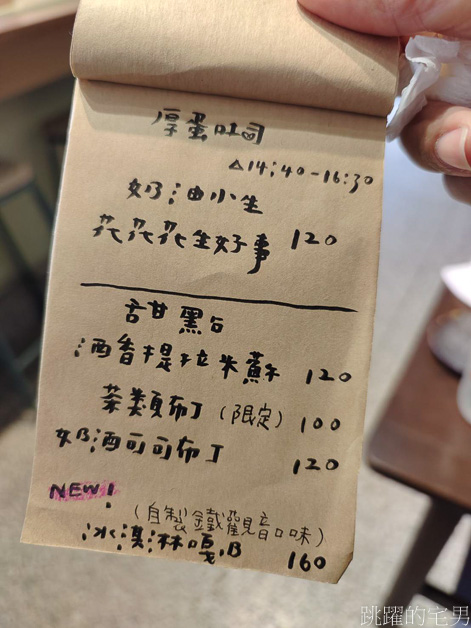 厚蛋吐司
△14:40-16:30
奶油小生
花花花生好事 120
甜點
酒香提拉米蘇 120
茶類布丁(限定) 100
奶酒可可布丁 120
NEW!
(自製鐵觀音口味)
冰淇淋嘎逼 160
跳躍的宅男